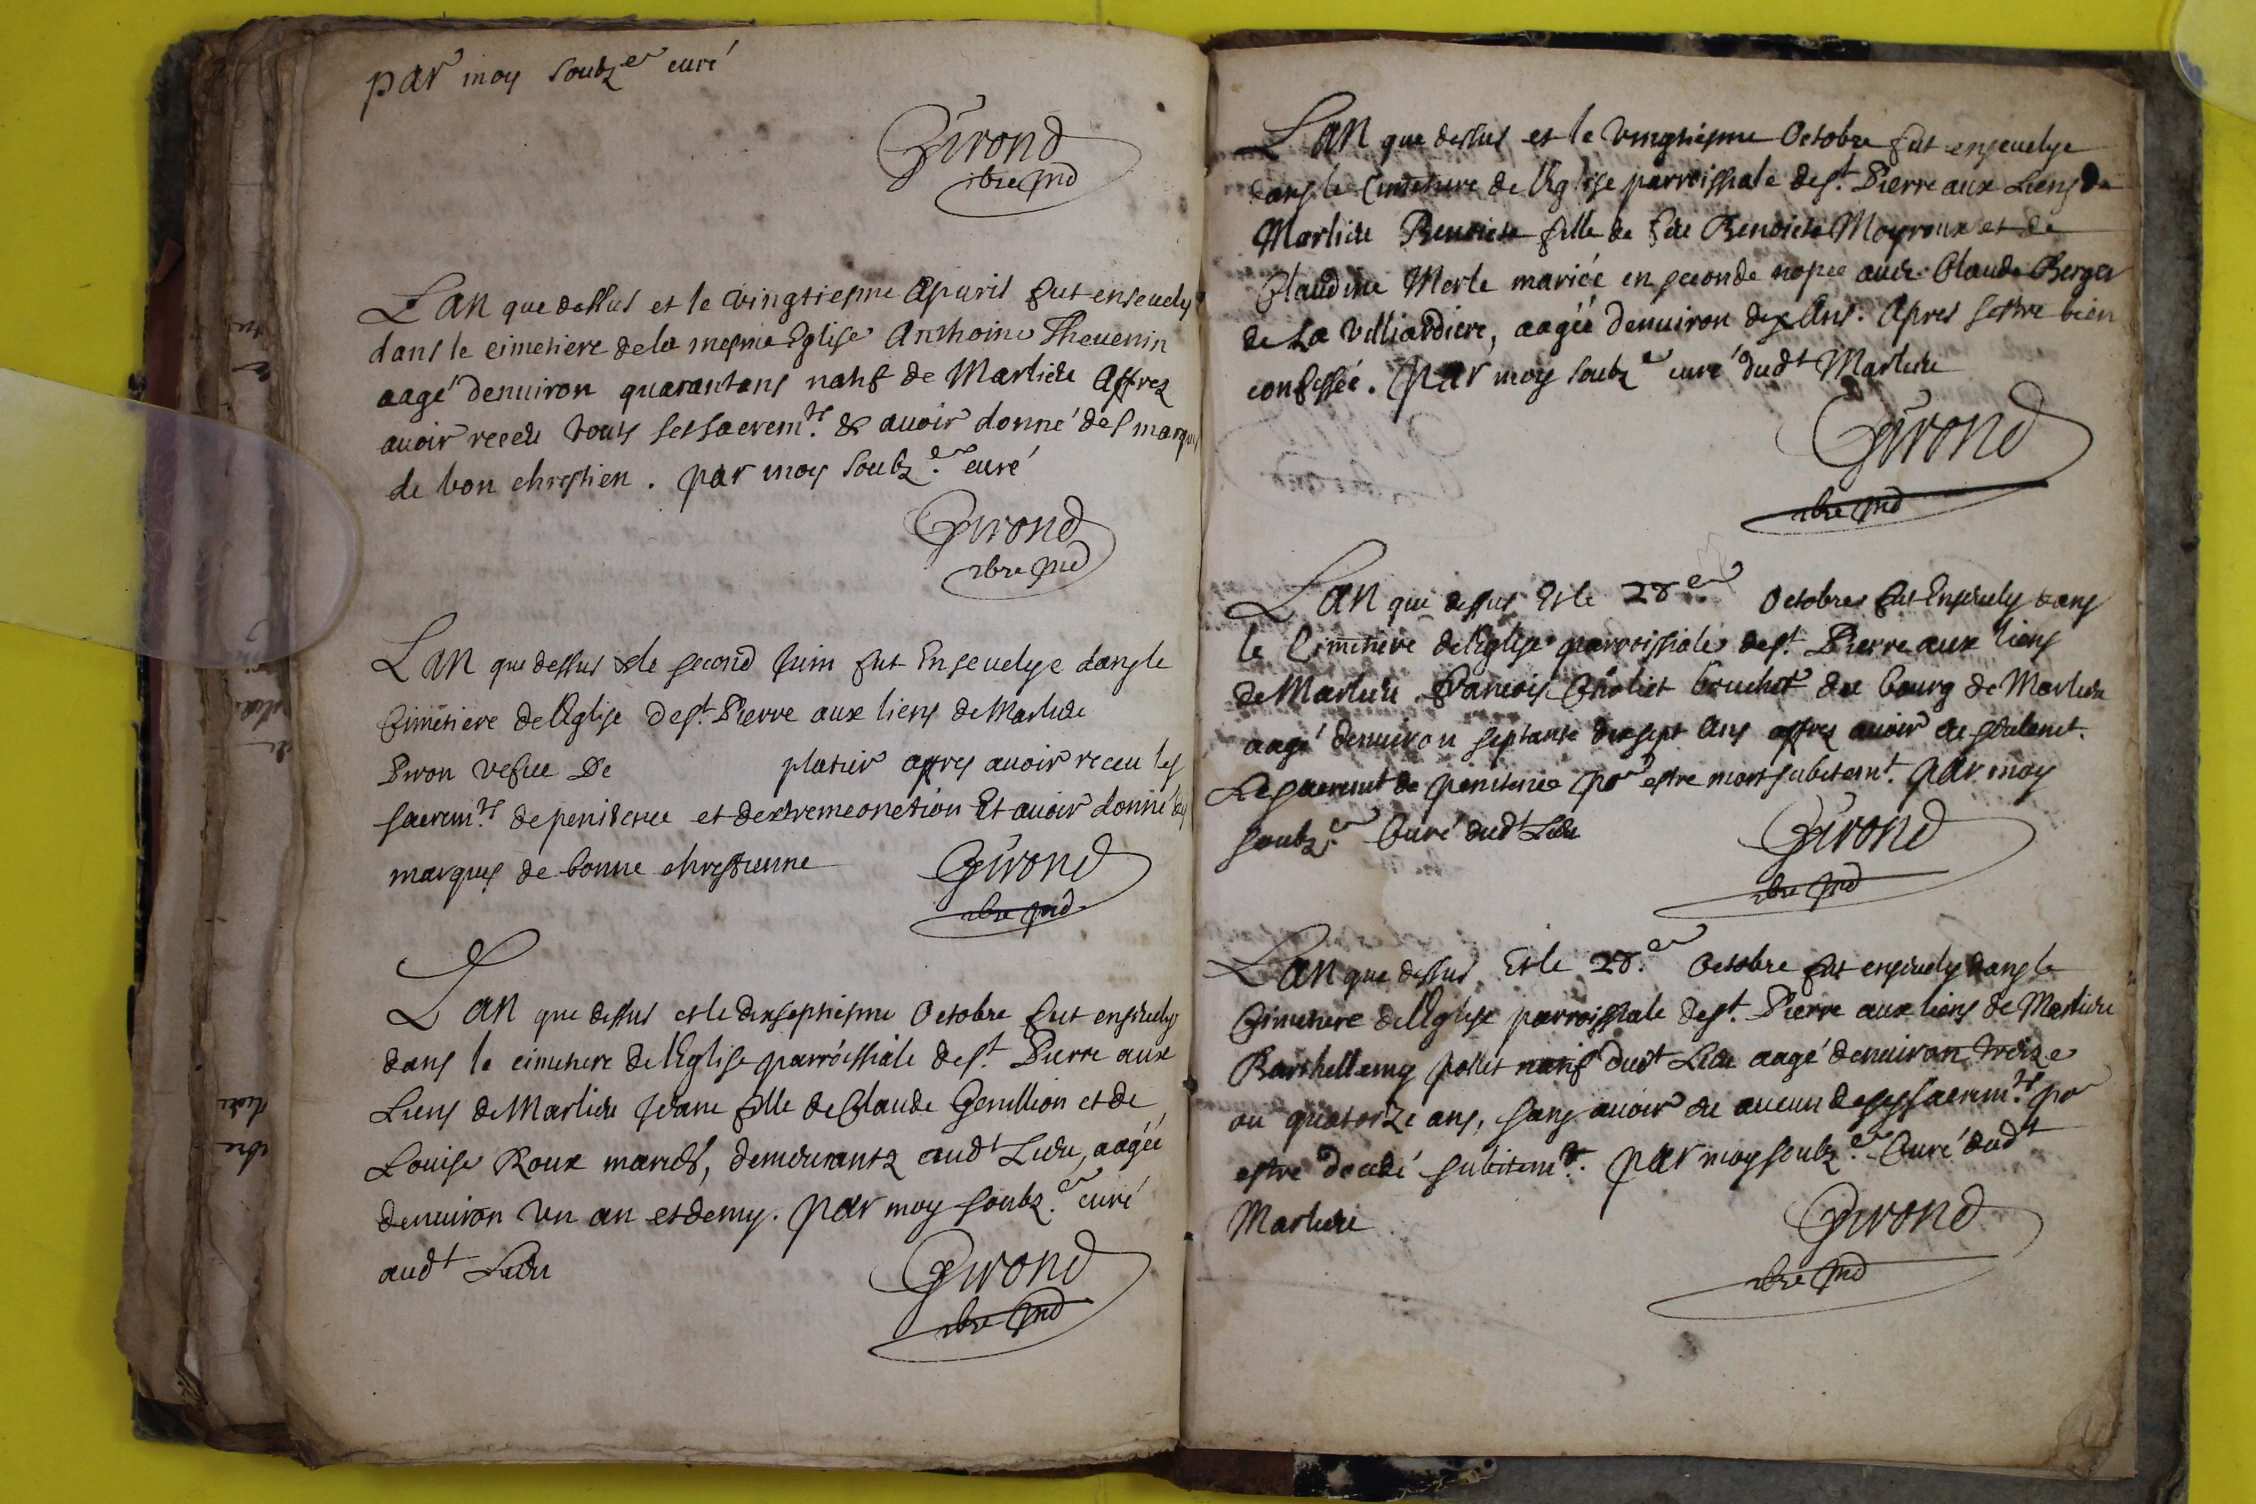 par moy soubz.er curé
Girond
L'an que dessus et le vingtiesme Apuril fut enseuely
dans le cimetiere de la mesme Eglise Anthoine Theuenin
aagé denuiron quarantans natif de Marlieu Affrez
auoir receu touts ses sacrem.ts & auoir donné des marques
de bon chrestien . par moy soubz.er curé
Girond
L'an que dessus & le second Juin fut Enseuelye dans le
Cimetiere de l'Eglise de s.t Pierre aux liens de Marlieu
Piron vefue De platier affres auoir receu les
sacrem.ts de penitence et dextremeonction Et auoir donné des
marques de bonne chrestienne
Girond
L'an que dessus et le dixseptiesme Octobre fut enseuely
dans le cimetiere de l'Eglise parroissiale de s.t Pierre aux
Liens de Marlieu Jeane fille de Claude Genillion et de
Louise Roux mariés, demeurantz aud.t Lieu, aagée
denuiron vn an et demy. par moy soubz.er curé
aud.t Lieu
Girond
L'an que dessus et le vingtiesme Octobre fut enseuelye
dans le Cimetiere de l'Eglise parroissiale de s.t Pierre aux Liens de
Marlieu Benoiste fille de feu Benoist Moyroux et de
Claudine Merle mariée en seconde nopce auec Claude Berger
de La Villiardiere, aagée denuiron dix Ans. Apres sestre bien
confessée. par moy soubz.er curé dud.t Marlieu
Girond
L'an que dessus Et le 28.e Octobre fut Enseuely dans
le Cimetiere de l'Eglise parroissiale de s.t Pierre aux liens
de Marlieu Francois Choliet du bourg de Marlieu
aagé denuiron septante dixsept Ans affrez auoir eu seulemt.
Le sacremt de penitence po.r estre mort subitem.t. par moy
soubz.er Curé dud.t Lieu
Girond
L'an que dessus Et le 28.e Octobre fut enseuely dans le
Cimetiere de l'Eglise parroissiale de s.t Pierre aux liens de Marlieu
Barthellemy pollet natif dud.t Lieu aagé denuiron treize
ou quatorze ans, sans auoir eu aucun de ses sacrem.ts po.r
estre decedé subitem.t. par moy soubz.er Curé dud.t
Marlieu
Girond